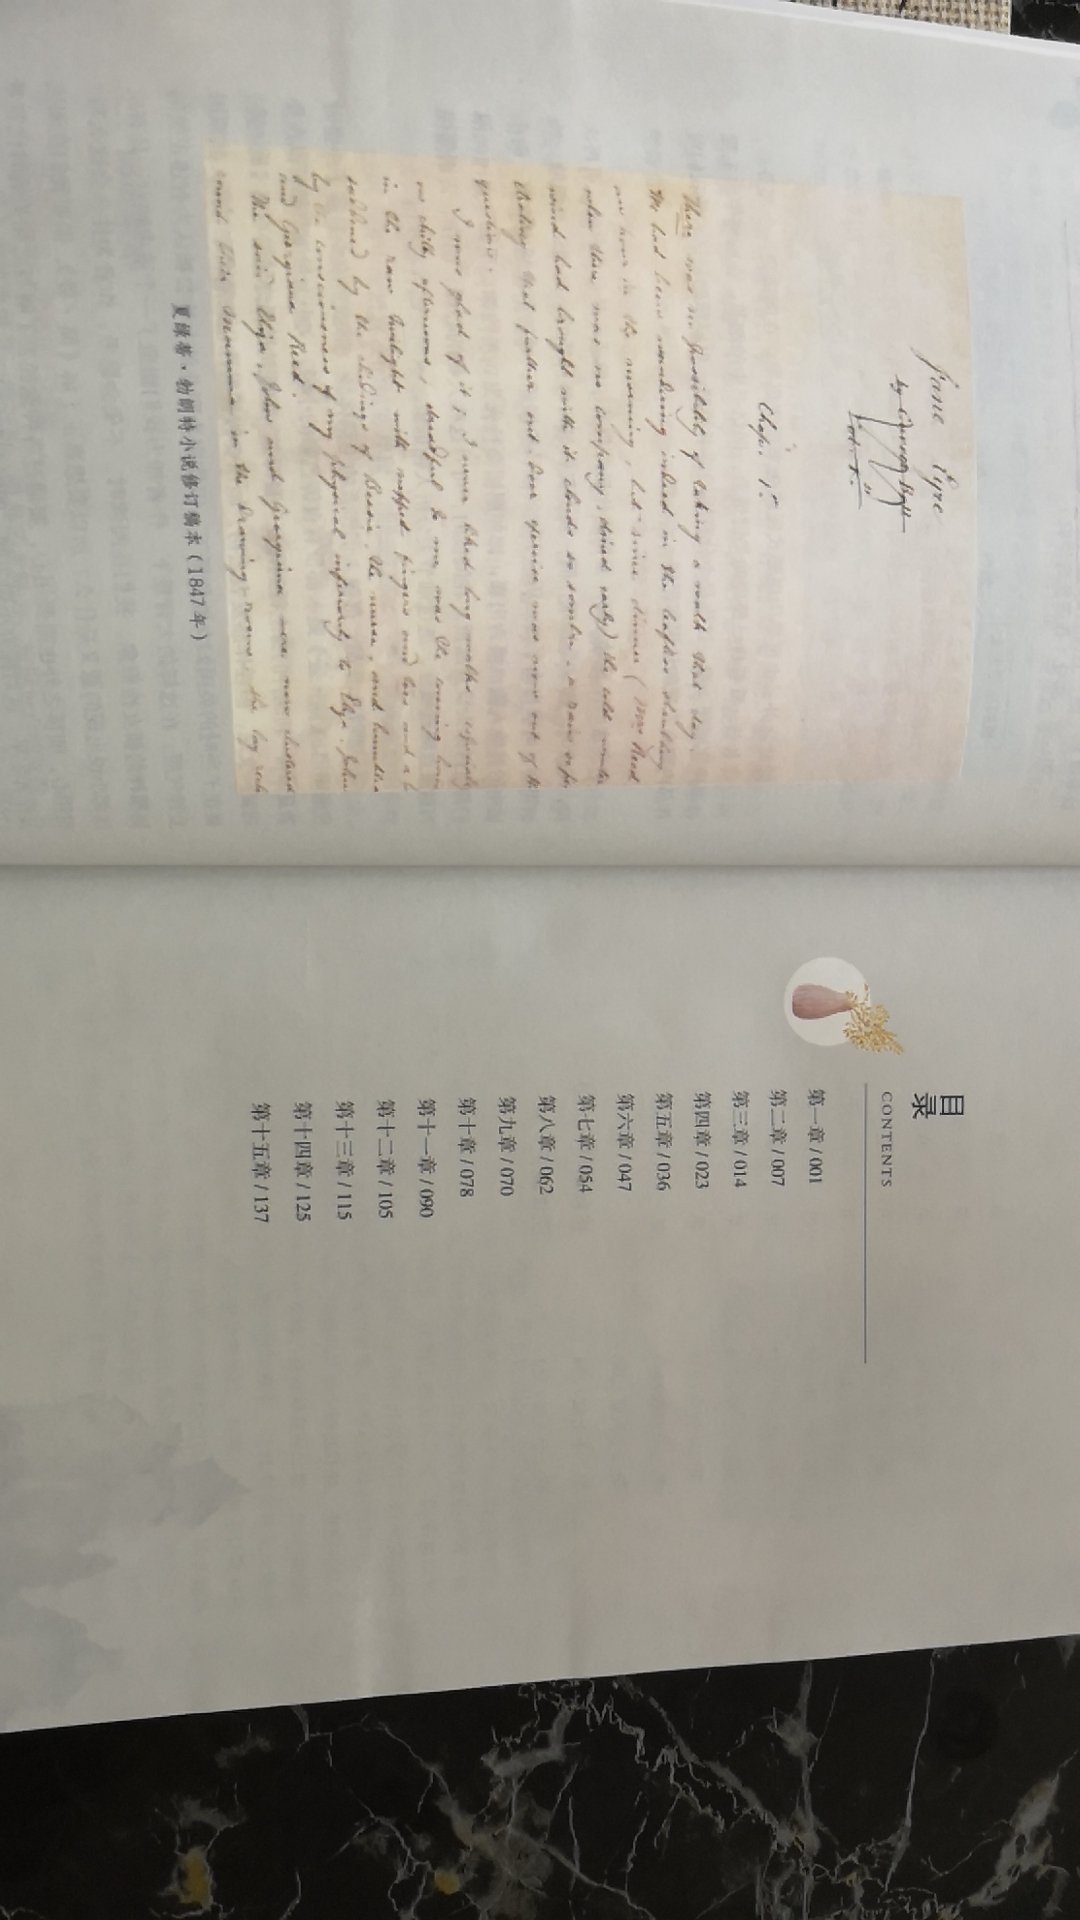 Jane Eyre
by Currer Bell
Vol. 1.
Chap. 1.
There was no possibility of taking a walk that day.
We had been wandering indeed in the leafless shrubbery
an hour in the morning, but since dinner (Mrs Reed
when there was no company, dined early) the cold winter
wind had brought with it clouds so sombre, a rain so
that further out-door exercise was now out of
question.
I was glad of it; I never liked long walks especially
on chilly afternoons; dreadful to me was the coming
in the raw twilight with nipped fingers and toes and a
saddened by the chidings of Bessie, the nurse, and humbled
by the consciousness of my physical inferiority to Eliza, John
and Georgiana Reed.
The said Eliza, John and Georgiana were now clustered
round their Mamma in the drawing-room; she lay
夏绿蒂·勃朗特小说修订稿本(1847年)
目录
CONTENTS
第一章/001
第二章/007
第三章/014
第四章/023
第五章/036
第六章/047
第七章/054
第八章/062
第九章/070
第十章/078
第十一章/090
第十二章/105
第十三章/115
第十四章/125
第十五章/137